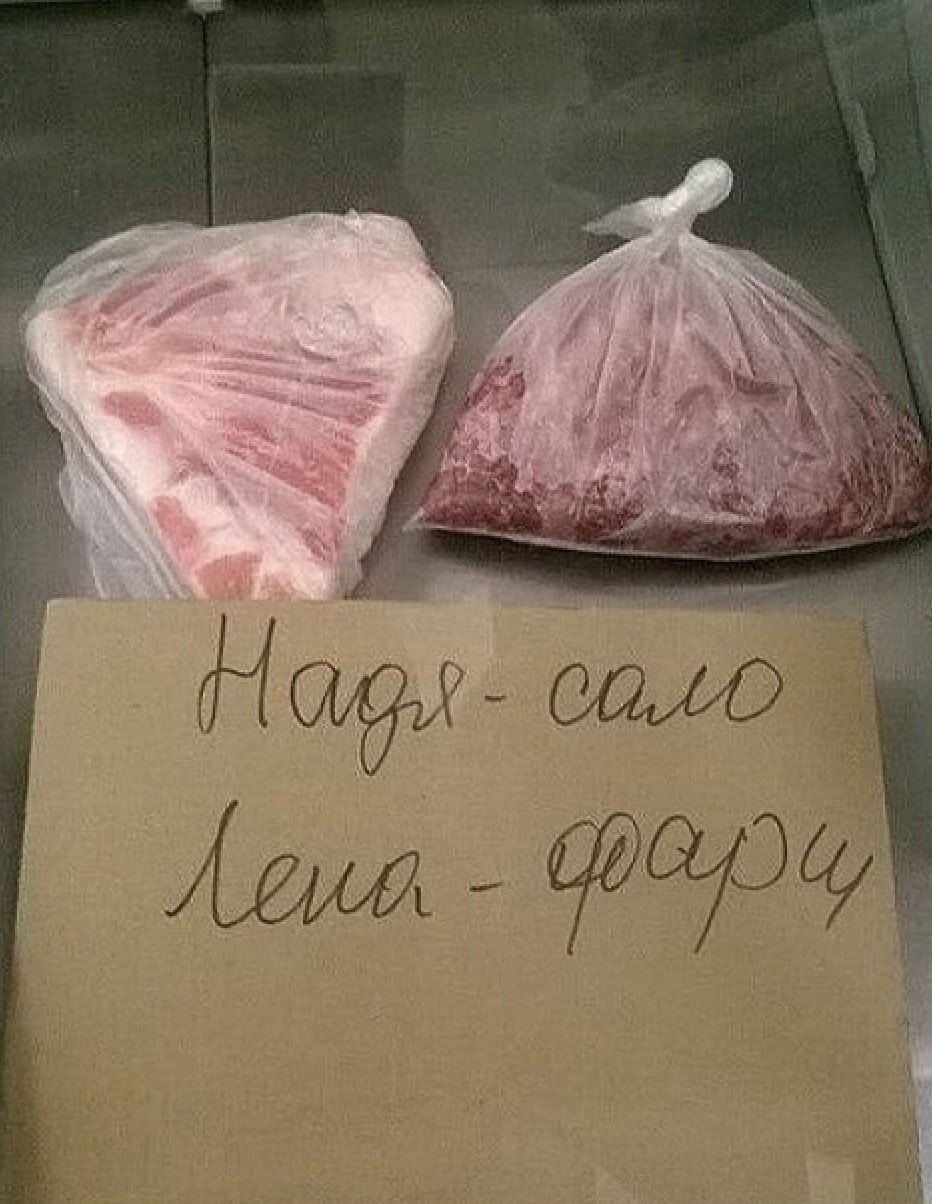 Надя - сало
Лена - фарш